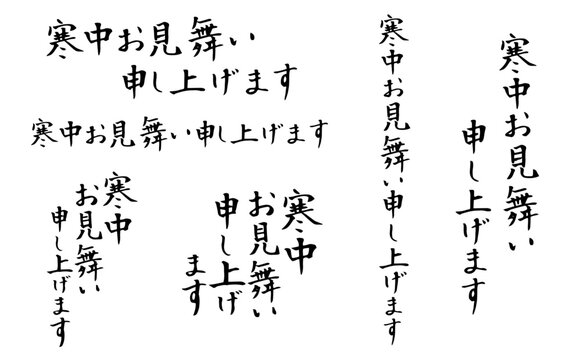 寒中お見舞い
申し上げます
寒中お見舞い申し上げます
寒中
お見舞い
申し上げます
寒中
お見舞い
申し上げ
ます
寒中お見舞い申し上げます
寒中お見舞い
申し上げます